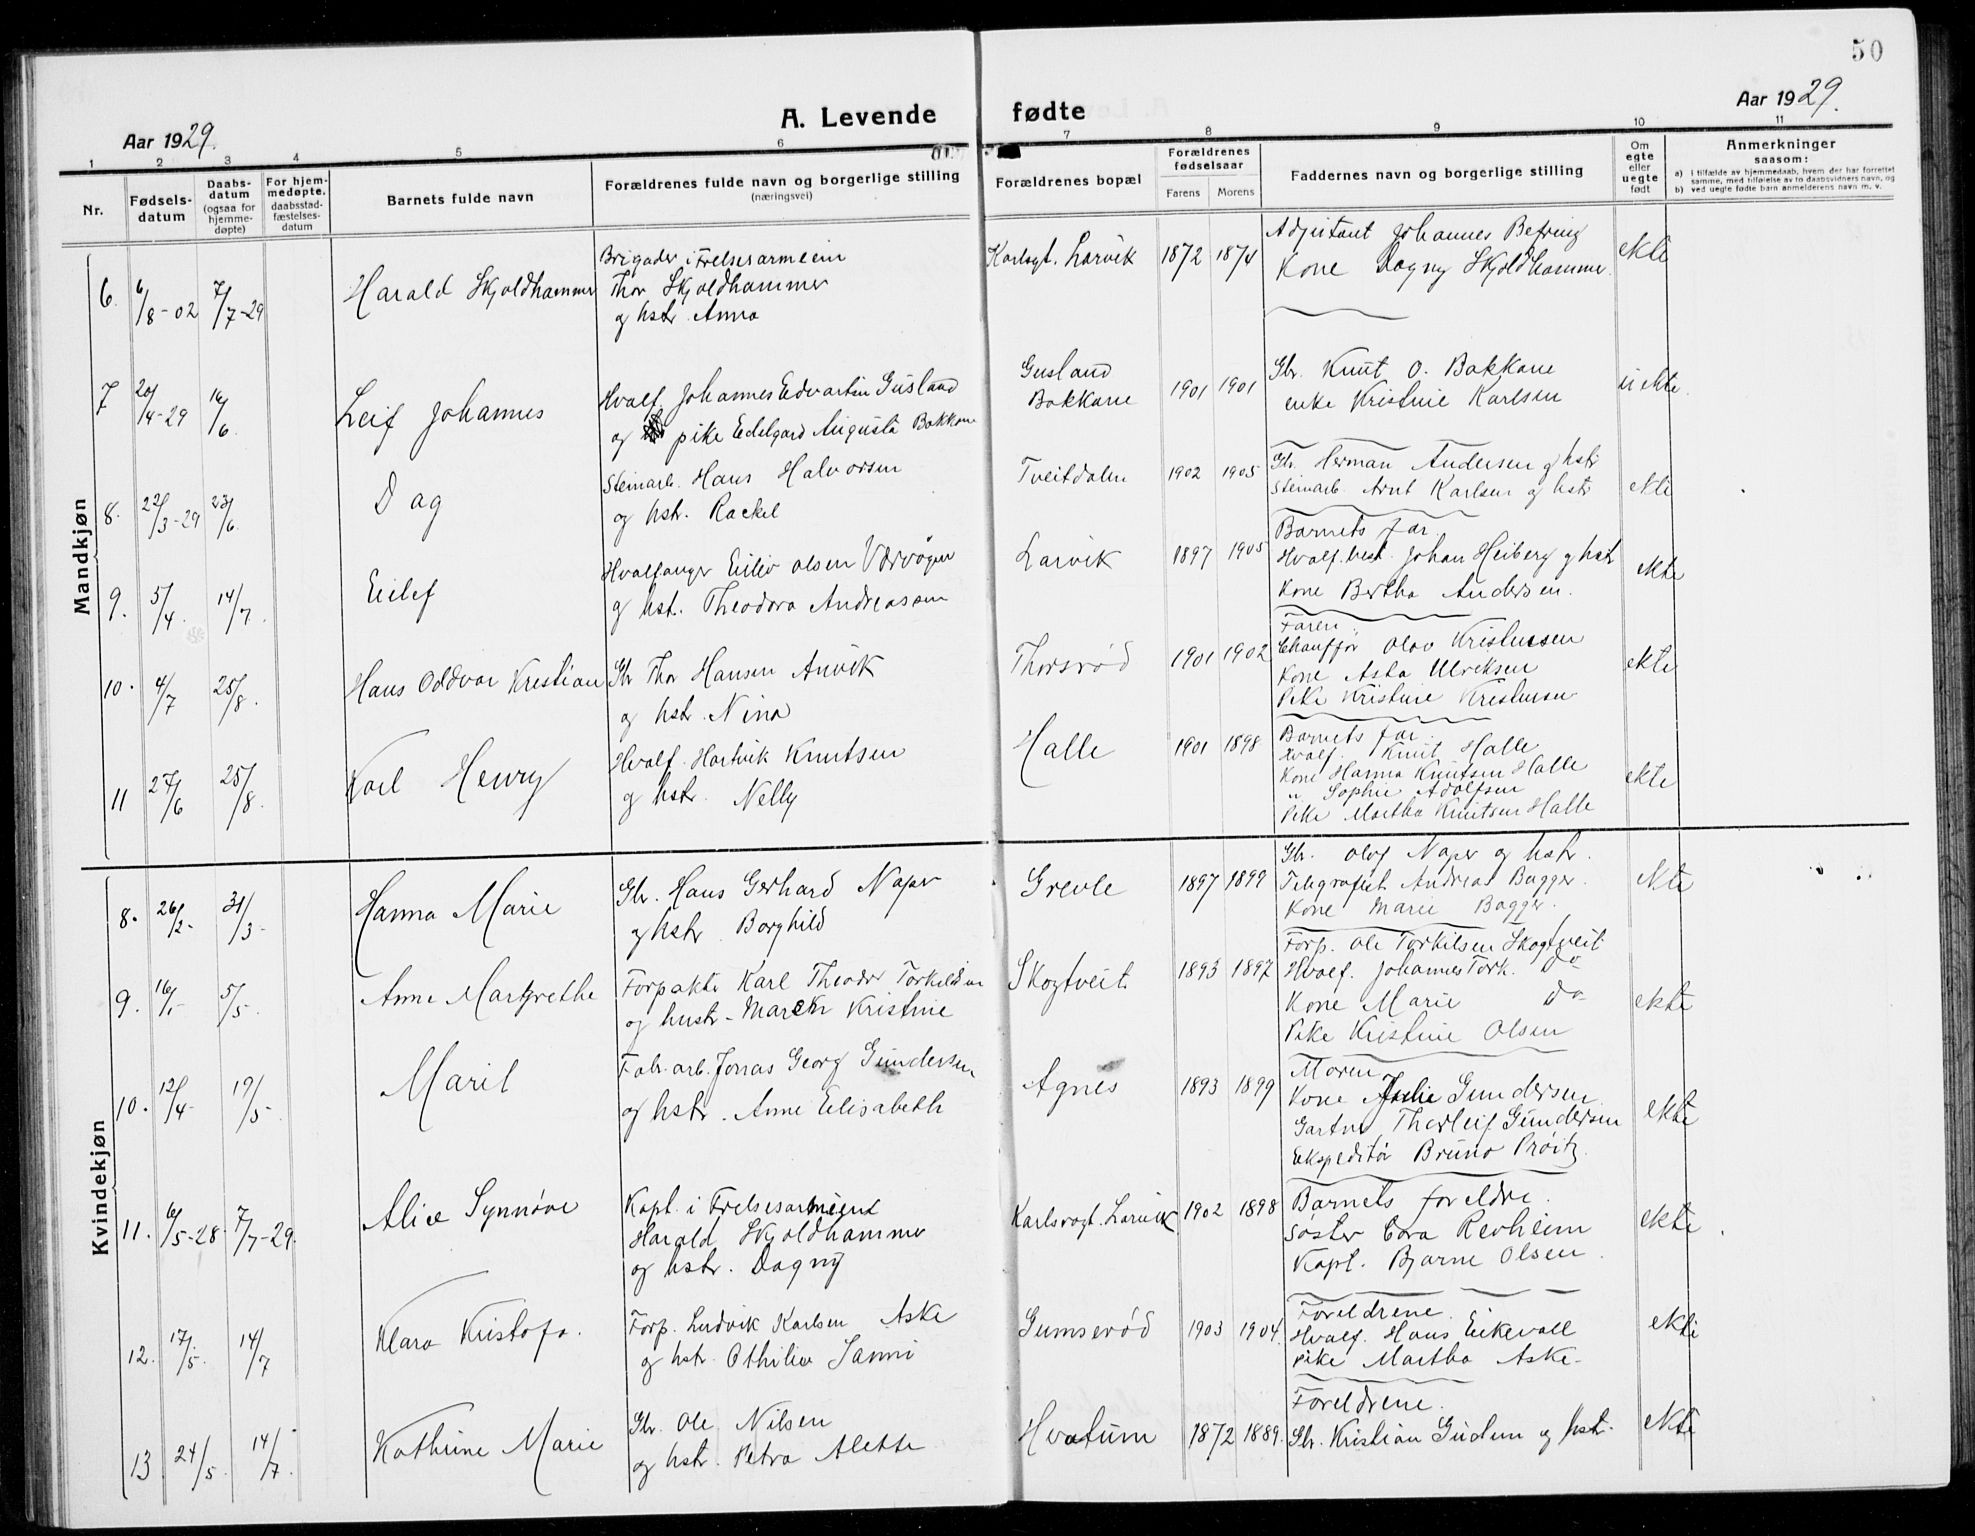 50
A. Levende fødte
Aar 1929.
Aar 1929.
1 2 3 4 5 6 7 8 9 10 11
Nr.
Fødsels-
datum
Daabs-
datum
(ogsaa for
hjemme-
døpte)
For hjem-
medøpte.
daabsstad-
fæstelses-
datum
Barnets fulde navn
Forældrenes fulde navn og borgerlige stilling
(næringsvei)
Forældrenes bopæl
Forældrenes
fødselsaar
Farens Morens
Faddernes navn og borgerlige stilling
Om
egte
eller
uegte
født
Anmerkninger
saasom:
a) i tilfælde av hjemmedaab, hvem der har forrettet
samme, med tilføielse av to daabsvidners navn, og
b) ved uegte fødte barn anmelderens navn m. v.
Mandkjøn
6. 6/8-02 7/7-29 Harald Skjoldhammer
Brigader i Frelsesarmeen
Thor Skjoldhammer
og hstr. Anna
Karlsgt. Larvik 1872 1874
Adjutant Johannes Befring
Kone Dagny Skjoldhammer.
ekte
7 20/4-29 16/6. Leif Johannes
Hvalf. Johannes Edvartin Gusland
og pike Edelgard Augusta Bakkane
Gusland
Bakkane
1901 1901
Gbr. Knut O. Bakkane
enke Kristine Karlsen
uekte.
8. 22/3-29 23/6. Dag
Steinarb. Hans Halvorsen
og hstr. Rackel
Tveitdalen 1902 1905
Gbr. Herman Andersen og hstr
Steinarb. Arnt Karlsen og hstr
ekte
9. 5/4. 14/7. Eilef
Hvalfanger Eiliv Olsen Vervågen
og hst. Theodora Andreassen
Larvik 1897 1905
Barnets far.
Hvalf.best. Johan Heiberg og hst
Kone Bertha Andersen.
ekte
10. 4/7 25/8. Hans Oddvar Kristian
Gbr Thor Hansen Anvik
og hstr. Nina
Thorsrød 1901 1902
Faren.
Chauffør Olav Kristensen
Kone Asta Ulriksen
Pike Kristine Kristensen
ekte
11 27/6 25/8. Karl Henry
Hvalf. Hartvik Knutsen
og hstr. Nelly
Halle 1901 1898
Barnets far.
Hvalf. Knut Halle
Kone Hanna Knutsen Halle
" Sophie Adolfsen
Pike Martha Knutsen Halle
ekte
Kvindekjøn
8. 26/2. 31/3- Hanna Marie
Gbr. Hans Gerhard Naper
og hstr Borghild
Grevle 1897 1899
Gbr. Olaf Naper og hstr.
Telegrafist Andreas Bagger.
Kone Marie Bagger.
ekte
9. 16/1- 5/5. Anne Margrethe
Forpakter Karl Theodor Torkildsen
og hustr- Maren Kristine
Skogtveit 1893 1897
Forp. Ole Torkilsen Skogtveit
Hvalf. Johannes Tork. Do
Kone Marie Do
Pike Kristine Olsen
ekte
10. 12/4- 19/5- Marit
Fabr.arb. Jonas Georg Gundersen
og hstr. Anne Elisabeth
Agnes 1893 1899
Moren
Kone Julie Gundersen.
Gartner Thorleif Gundersen
Ekspeditør Bruno Prøitz.
ekte
11. 6/5-28 7/7-29. Alice Synnøve
Kapt. i Frelsesarmeen
Harald Skjoldhammer
og hstr. Dagny
Karlsvogt. Larvik 1902 1898
Barnets foreldre.
Søster Cora Revheim
Kapt. Bjarne Olsen.
ekte
12. 17/5. 14/7 Klara Kristofa.
Forp. Ludvik Karlsen Aske
og hstr. Othilie Janni
Gumserød 1903 1904.
Foreldrene.
Hvalf. Hans Eikevall
pike Martha Aske-
ekte
13 24/5. 14/7. Kathrine Marie
Gbr. Ole Nilsen
og hstr. Petra Alette
Hvatum 1872 1889.
Foreldrene.
Gbr. Kristian Gudem og hstr.
ekte